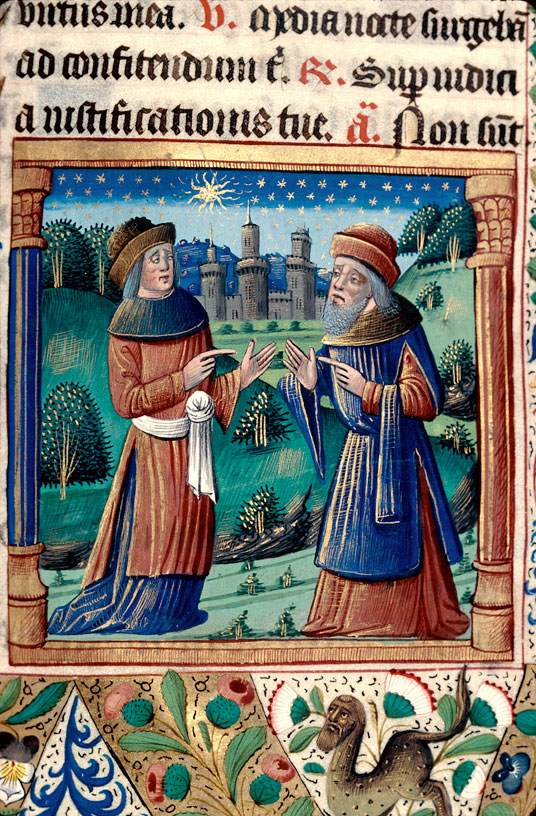 virtus mea. V. Media nocte surgebā
ad confitendum t̄. R. Sup iudici
a iustificationis tue. ā. Non sūt